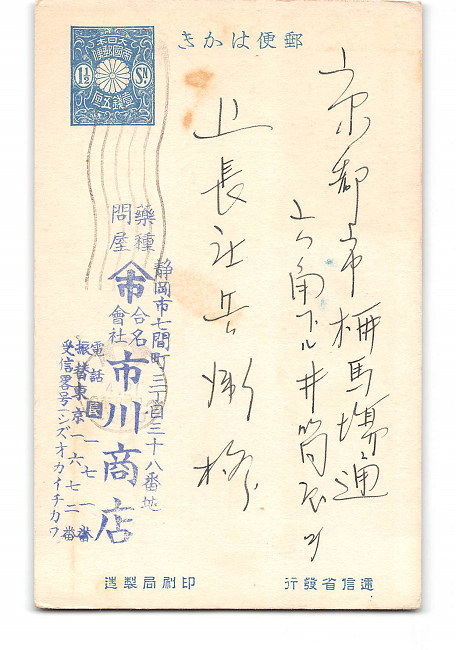 郵便はかき
大日本
帝國郵便
1½ SN.
壹錢五厘
京都市柳馬場通
六角下ル井筒屋
上長社兵衛様
藥種
問屋
市
靜岡市七間町三丁目三十八番地
合名
會社
市川商店
電話
一七一番
振替東京一六七二番
受信畧号シズオカイチカワ
遞信省發行
印刷局製造